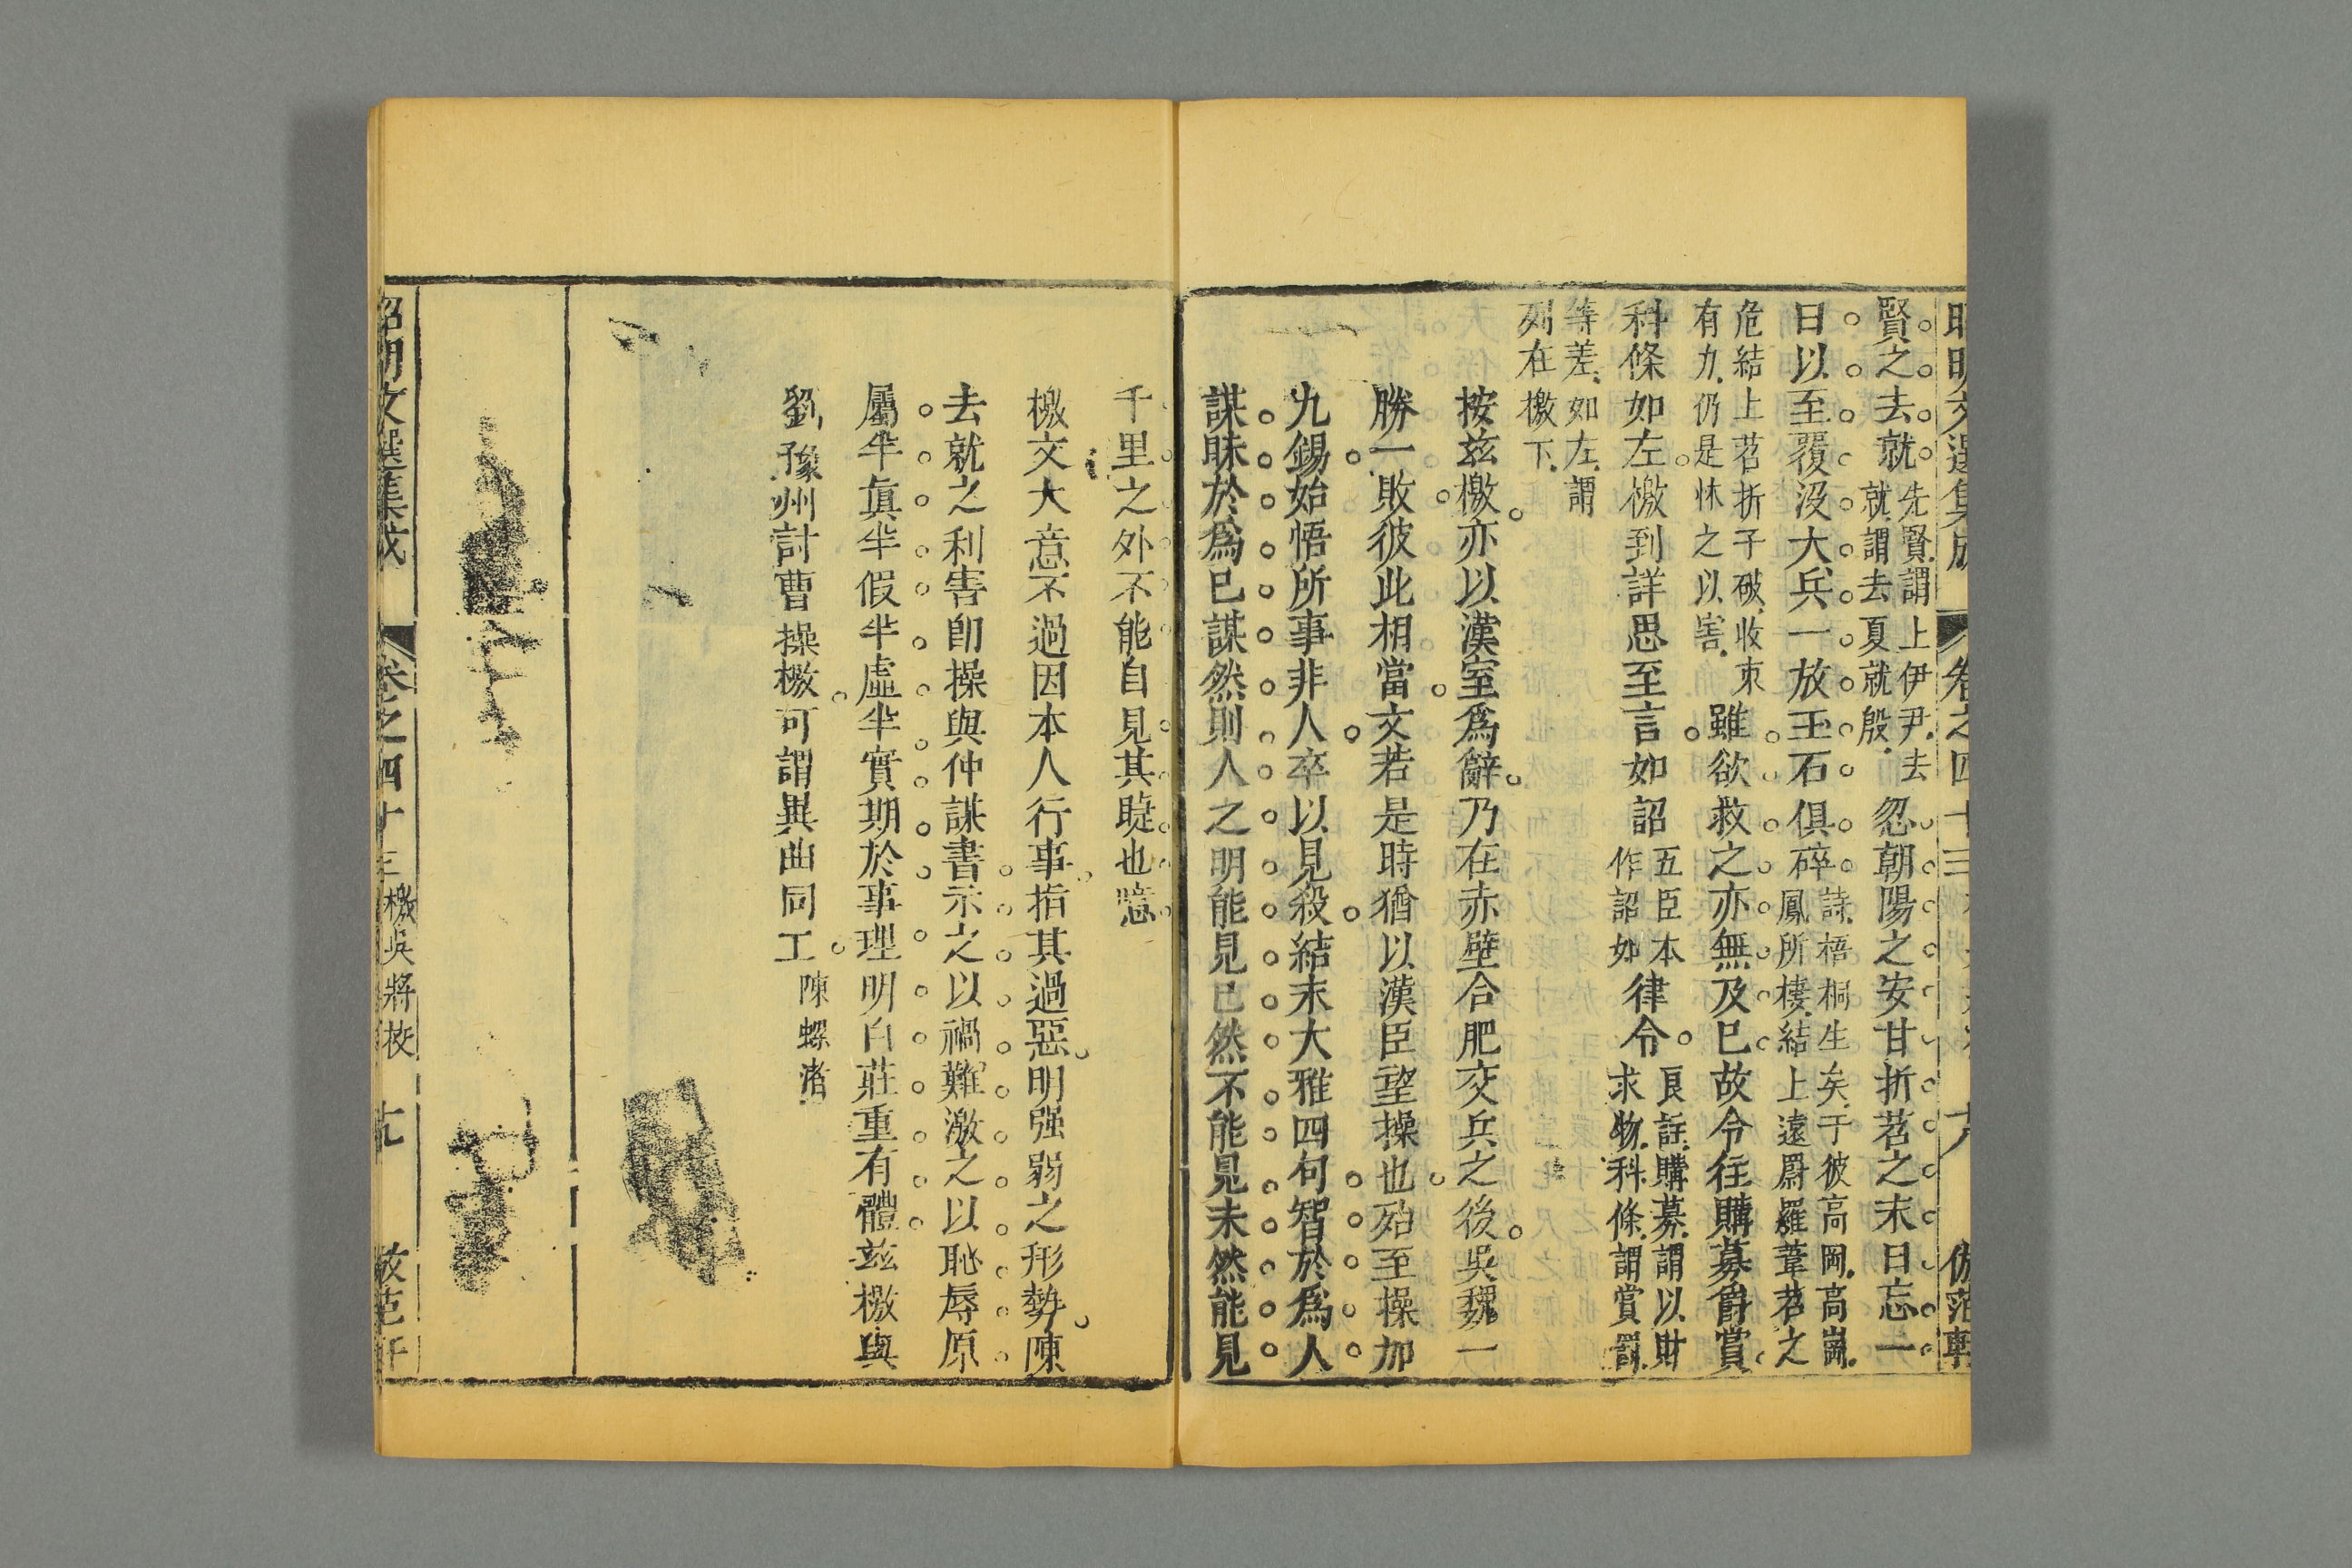 昭明文選集成 卷之四十三 六 倣范軒
賢之去就先賢謂上伊尹去就謂去夏就殷忽朝陽之安甘折苕之末日忘一
日以至覆沒大兵一放玉石俱碎詩梧桐生矣于彼高岡高崗鳳所棲結上遠罻羅葦苕之
危結上苕折子破收束有力仍是怵之以害雖欲救之亦無及巳故令往購募爵賞
科條如左檄到詳思至言如詔五臣本作詔如律令良註購募謂以財求物科條謂賞罰
等差如左謂列在檄下
按茲檄亦以漢室爲辭乃在赤壁合肥交兵之後吳魏一
勝一敗彼此相當文若是時猶以漢臣望操也殆至操加
九錫始悟所事非人卒以見殺結末大雅四句智於爲人
謀昧於爲巳謀然則人之明能見巳然不能見未然能見
千里之外不能自見其睫也噫
檄文大意不過因本人行事指其過惡明强弱之形勢陳
去就之利害卽操與仲謀書示之以禍難激之以恥辱原
屬半眞半假半虛半實期於事理明白莊重有體茲檄與
劉豫州討曹操檄可謂異曲同工陳螺渚
昭明文選集成 卷之四十三檄吳將校 七 倣范軒